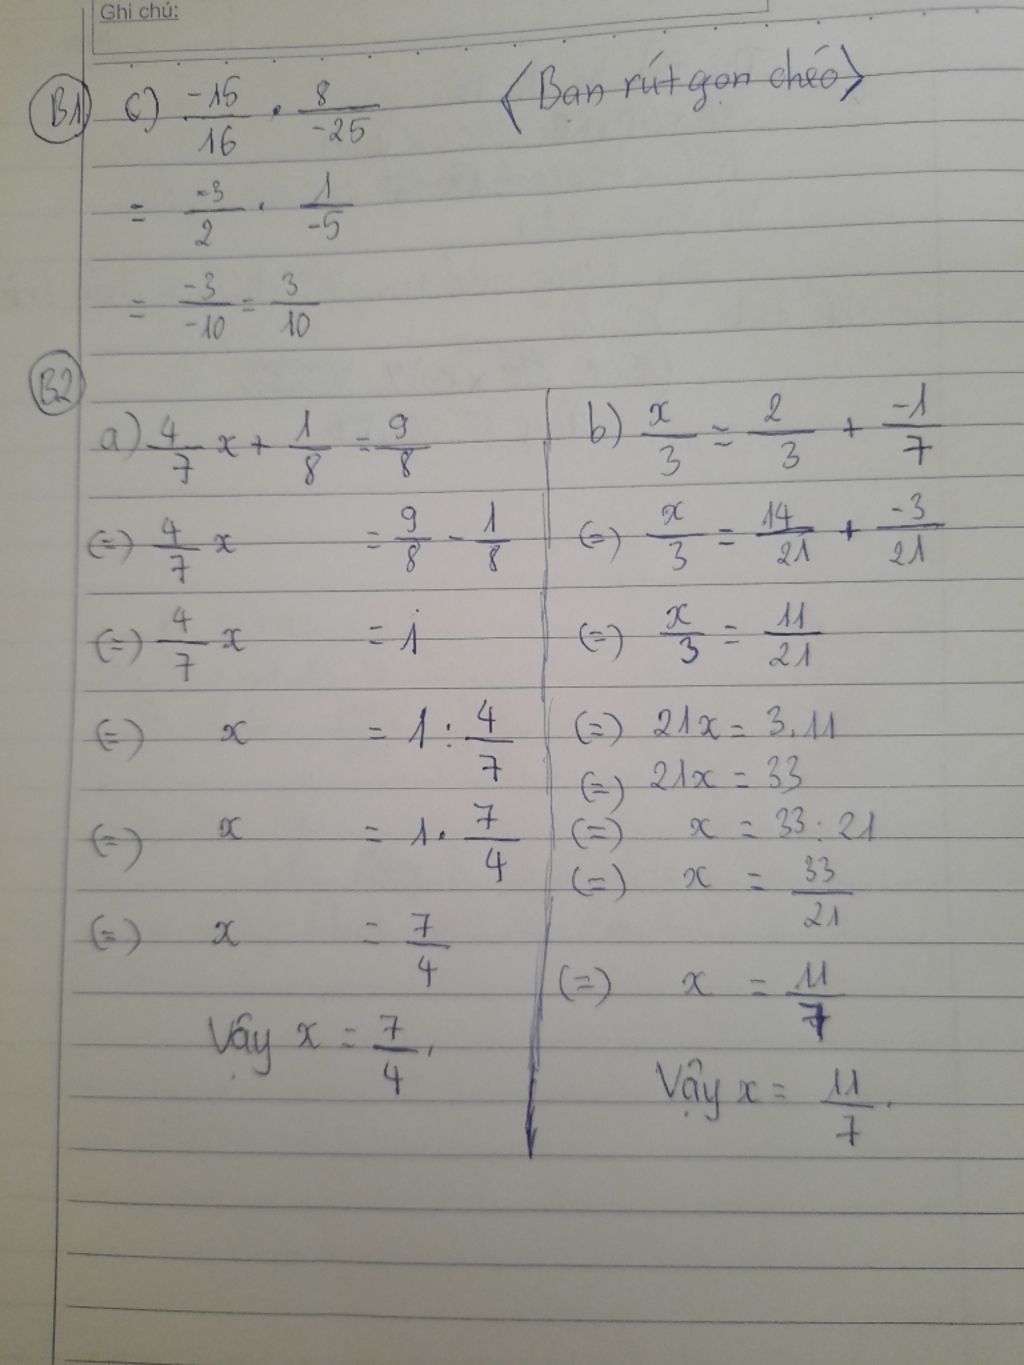 Ghi chú:
B1 c) -15/16 . 8/-25 <Bạn rút gọn chéo>
= -3/2 . 1/-5
= -3/-10 = 3/10
B2
a) 4/7 x + 1/8 = 9/8
(=) 4/7 x = 9/8 - 1/8
(=) 4/7 x = 1
(=) x = 1 : 4/7
(=) x = 1 . 7/4
(=) x = 7/4
Vậy x = 7/4.
b) x/3 = 2/3 + -1/7
(=) x/3 = 14/21 + -3/21
(=) x/3 = 11/21
(=) 21x = 3.11
(=) 21x = 33
(=) x = 33 : 21
(=) x = 33/21
(=) x = 11/7
Vậy x = 11/7.